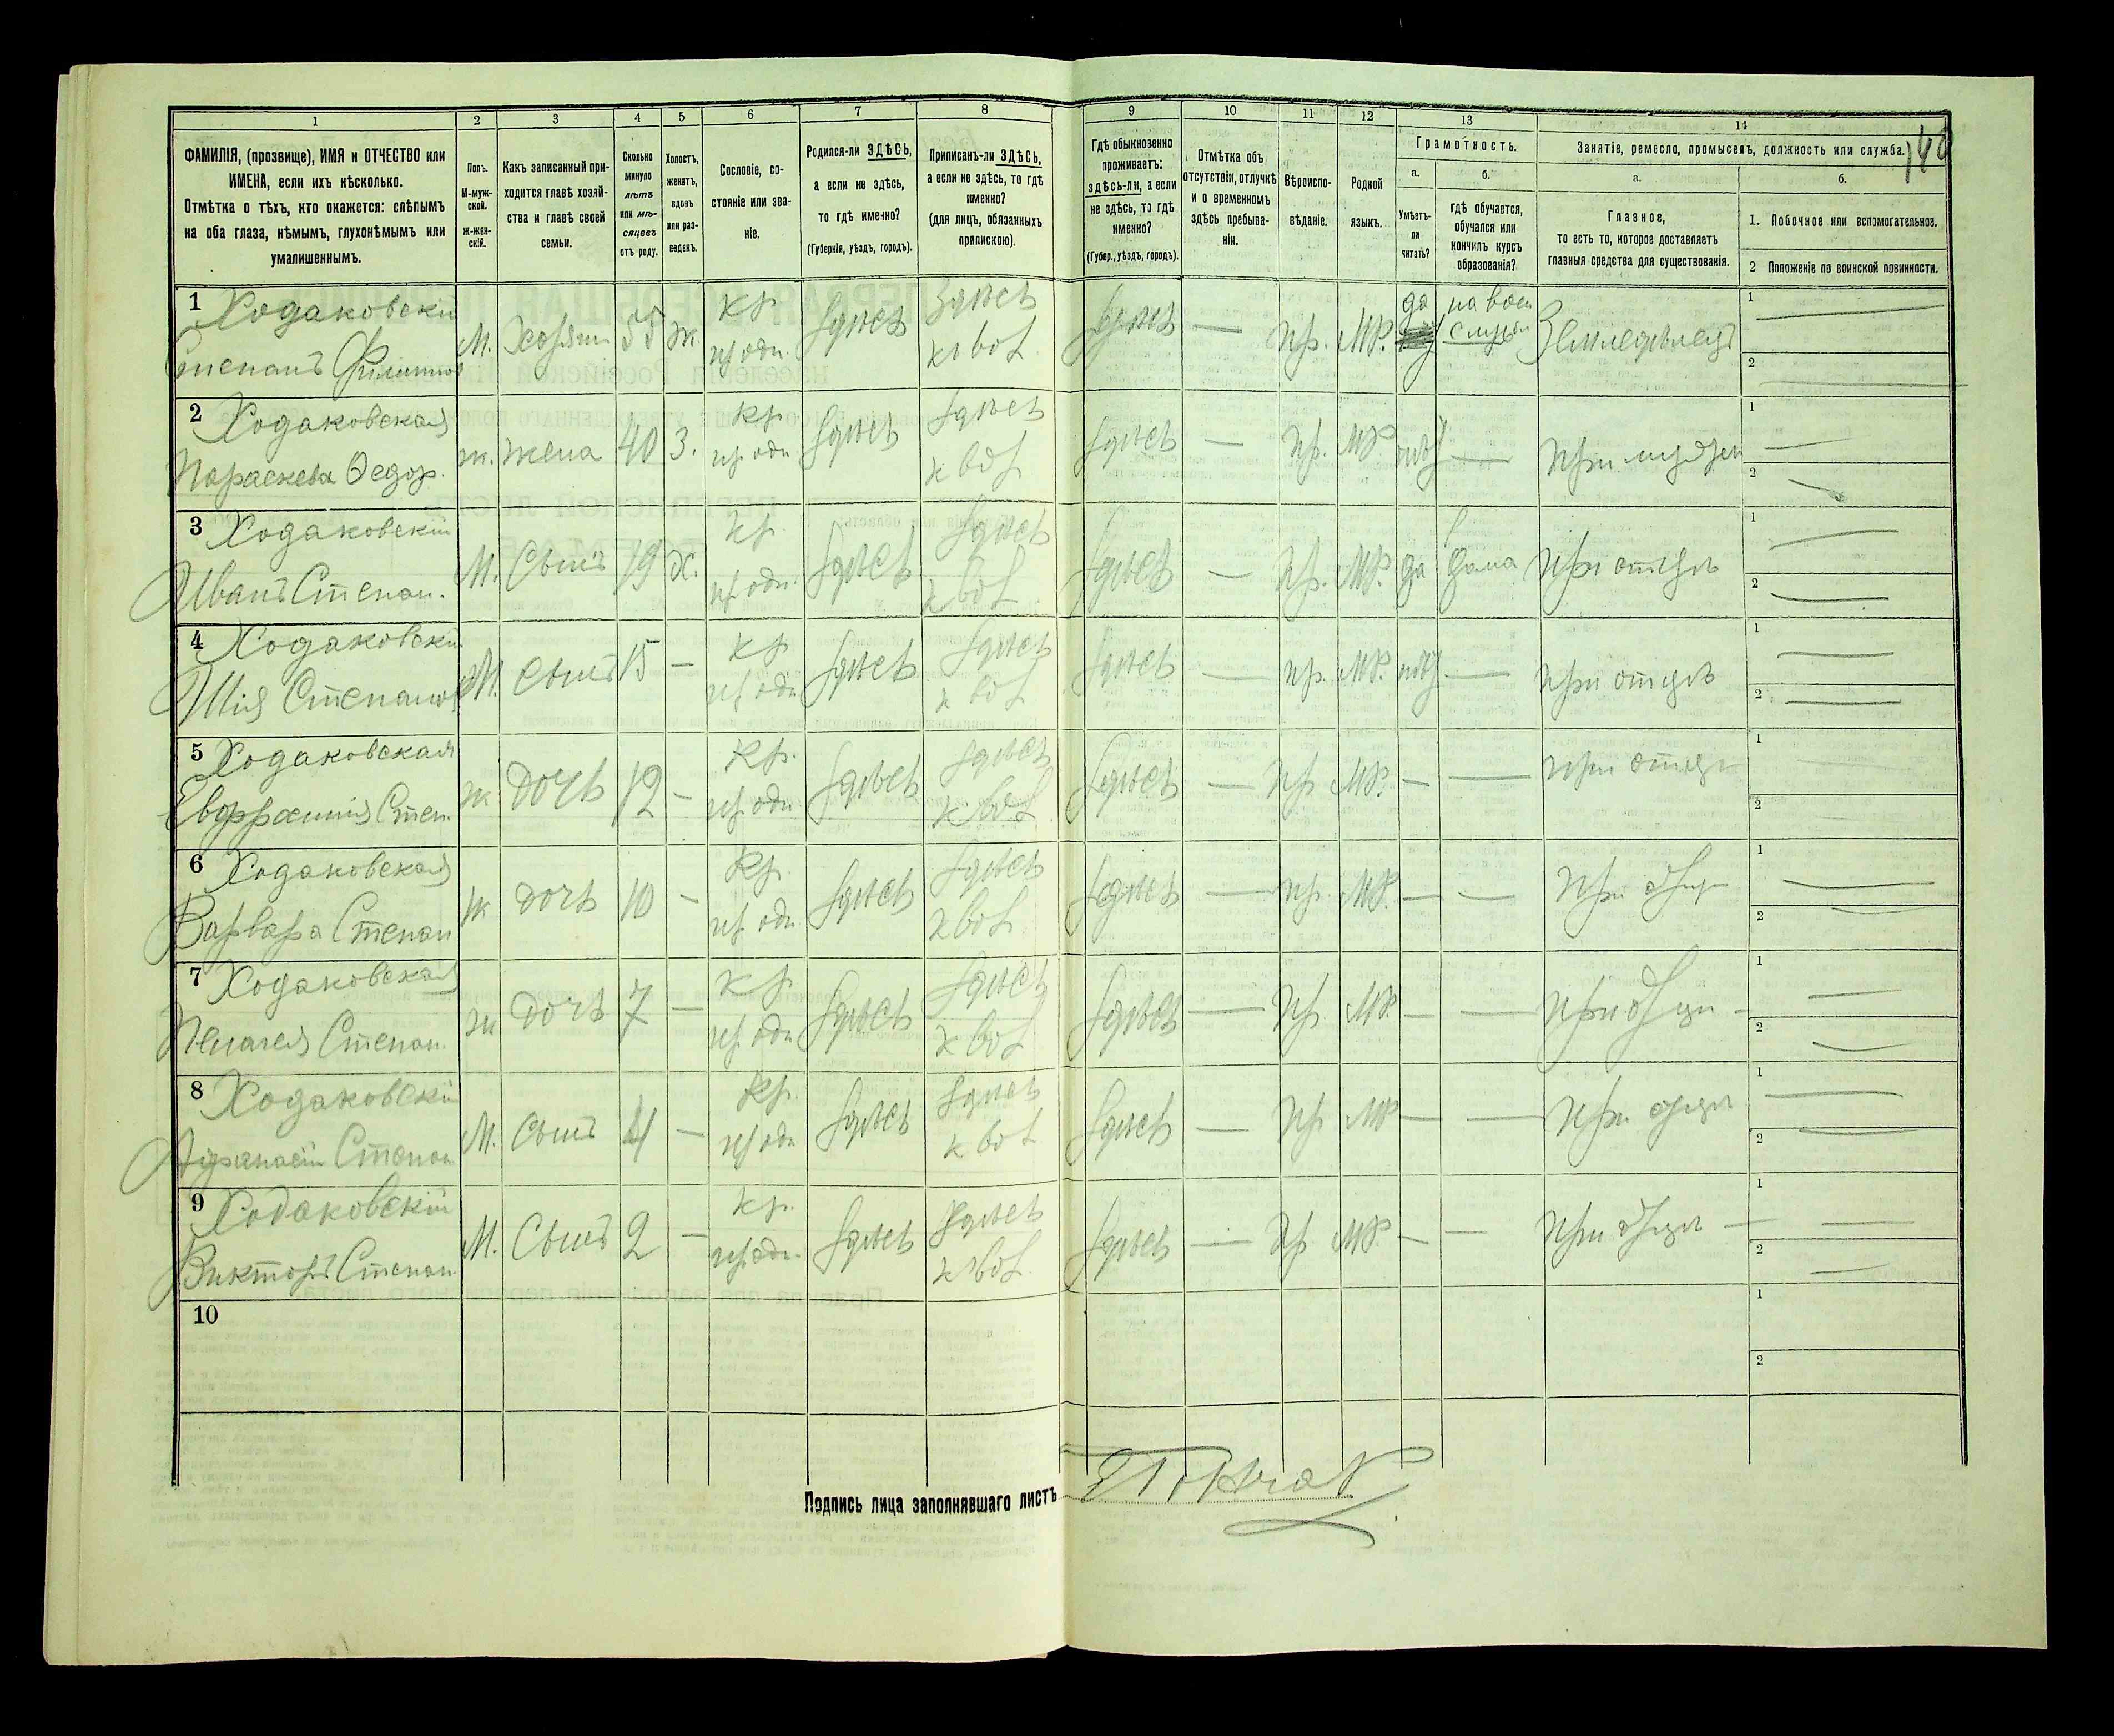 1 2 3 4 5 6 7 8 9 10 11 12 13 14
140
ФАМИЛІЯ, (прозвище), ИМЯ и ОТЧЕСТВО или
ИМЕНА, если ихъ нѣсколько.
Отмѣтка о тѣхъ, кто окажется: слѣпымъ
на оба глаза, нѣмымъ, глухонѣмымъ или
умалишеннымъ.
Полъ.
М-муж-
ской.
ж-жен-
скій.
Какъ записанный при-
ходится главѣ хозяй-
ства и главѣ своей
семьи.
Сколько
минуло
лѣтъ
или мѣ-
сяцевъ
отъ роду.
Холостъ,
женатъ,
вдовъ
или раз-
веденъ.
Сословіе, со-
стояніе или зва-
ніе.
Родился-ли ЗДѢСЬ,
а если не здѣсь,
то гдѣ именно?
(Губернія, уѣздъ, городъ).
Приписанъ-ли ЗДѢСЬ,
а если не здѣсь, то гдѣ
именно?
(для лицъ, обязанныхъ
припискою).
Гдѣ обыкновенно
проживаетъ:
здѣсь-ли, а если
не здѣсь, то гдѣ
именно?
(Губер., уѣздъ, городъ).
Отмѣтка объ
отсутствіи, отлучкѣ
и о временномъ
здѣсь пребыва-
ніи.
Вѣроиспо-
вѣданіе.
Родной
языкъ.
Грамотность.
а.
Умѣетъ-
ли
читать?
б.
гдѣ обучается,
обучался или
кончилъ курсъ
образованія?
Занятіе, ремесло, промыселъ, должность или служба.
а.
Главное,
то есть то, которое доставляетъ
главныя средства для существованія.
б.
1. Побочное или вспомогательное.
2 Положеніе по воинской повинности.
1 Ходаковскій кр. Здѣсь да на воен. 1
Степанъ Филиппов М. Хозяин 55 ж. Здѣсь Здѣсь — пр. МР. Земледѣлецъ 2
2 Ходаковская кр. Здѣсь 1
Параскева Ѳедор. ж. жена 40 З. Здѣсь Здѣсь — пр. МР. нѣт — При мужѣ 2
3 Ходаковскій кр. Здѣсь 1
Иванъ Степан. М. Сынъ 19 Х. Здѣсь Здѣсь — пр. МР. да дома При отцѣ 2
4 Ходаковскій кр Здѣсь 1
Степанов М. Сынъ 15 — Здѣсь Здѣсь — пр. МР. нѣт — При отцѣ 2
5 Ходаковская кр. Здѣсь 1
Евфросинія Степ. ж Дочь 12 — Здѣсь Здѣсь — пр МР. — — при отцѣ 2
6 Ходаковская кр. Здѣсь 1
Варвара Степан ж дочь 10 — Здѣсь Здѣсь — пр. МР. — — При отцѣ 2
7 Ходаковская кр. Здѣсь 1
Пелагея Степан. ж Дочь 7 — Здѣсь Здѣсь — пр МР. — — При отцѣ 2
8 Ходаковскій кр. Здѣсь 1
Афанасій Степан М. Сынъ 4 — Здѣсь Здѣсь — пр МР — — При отцѣ 2
9 Ходаковскій кр. Здѣсь 1
Викторъ Степан. М. Сынъ 2 — Здѣсь Здѣсь — пр МР. — — При отцѣ 2
10 1
2
Подпись лица заполнявшаго листъ